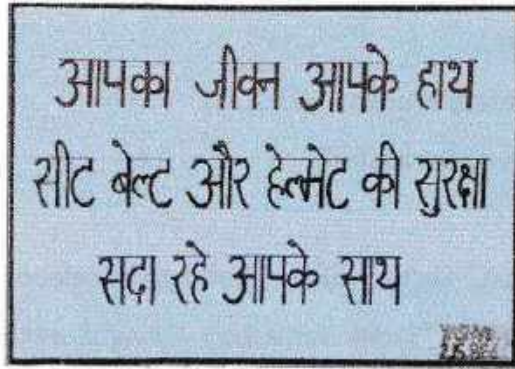 आपका जीवन आपके हाथ
सीट बेल्ट और हेल्मेट की सुरक्षा
सदा रहे आपके साथ